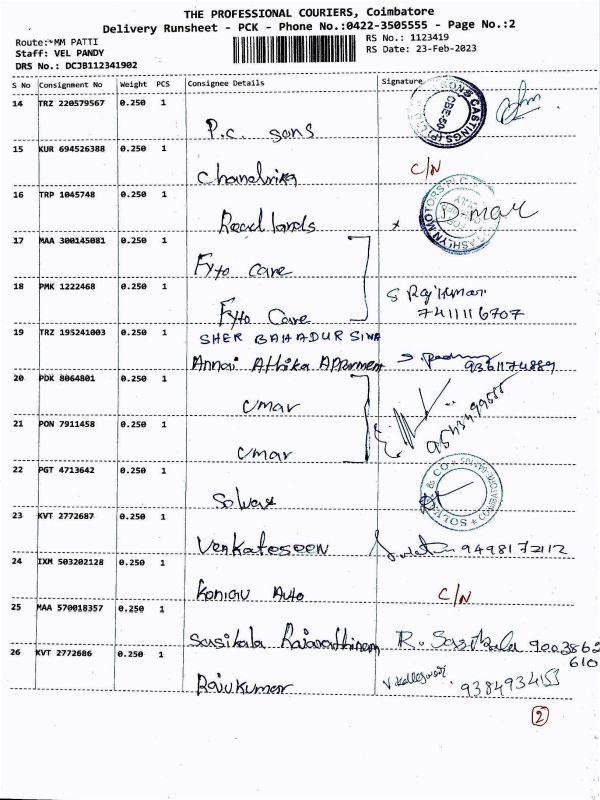 THE PROFESSIONAL COURIERS, Coimbatore
Delivery Runsheet - PCK - Phone No.:0422-3505555 - Page No.:2
Route:~MM PATTI
Staff: VEL PANDY
DRS No.: DCJB112341902
RS No.: 1123419
RS Date: 23-Feb-2023
S No Consignment No Weight PCS Consignee Details Signature
14 TRZ 220579567 0.250 1
P.c. sons
15 KUR 694526388 0.250 1
Chandrika C/N
16 TRP 1045748 0.250 1
Roadlands D-mar
17 MAA 300145081 0.250 1
Fyto care
18 PMK 1222468 0.250 1 S Rajkumar
Fyto Care 7411116707
19 TRZ 195241003 0.250 1
SHER BAHADUR SINA
Annai Athika Apparment 9361174889
20 PDK 8064801 0.250 1
Umar
21 PON 7911458 0.250 1
Umar
22 PGT 4713642 0.250 1
Solvax
SOLVAX & CO
23 KVT 2772687 0.250 1
Venkateseen 9498172112
24 IXM 503202128 0.250 1
Auto C/N
25 MAA 570018357 0.250 1
Sasikala R. Sasikala 9003862
610
26 KVT 2772686 0.250 1
Rajukumar 9384934153
2